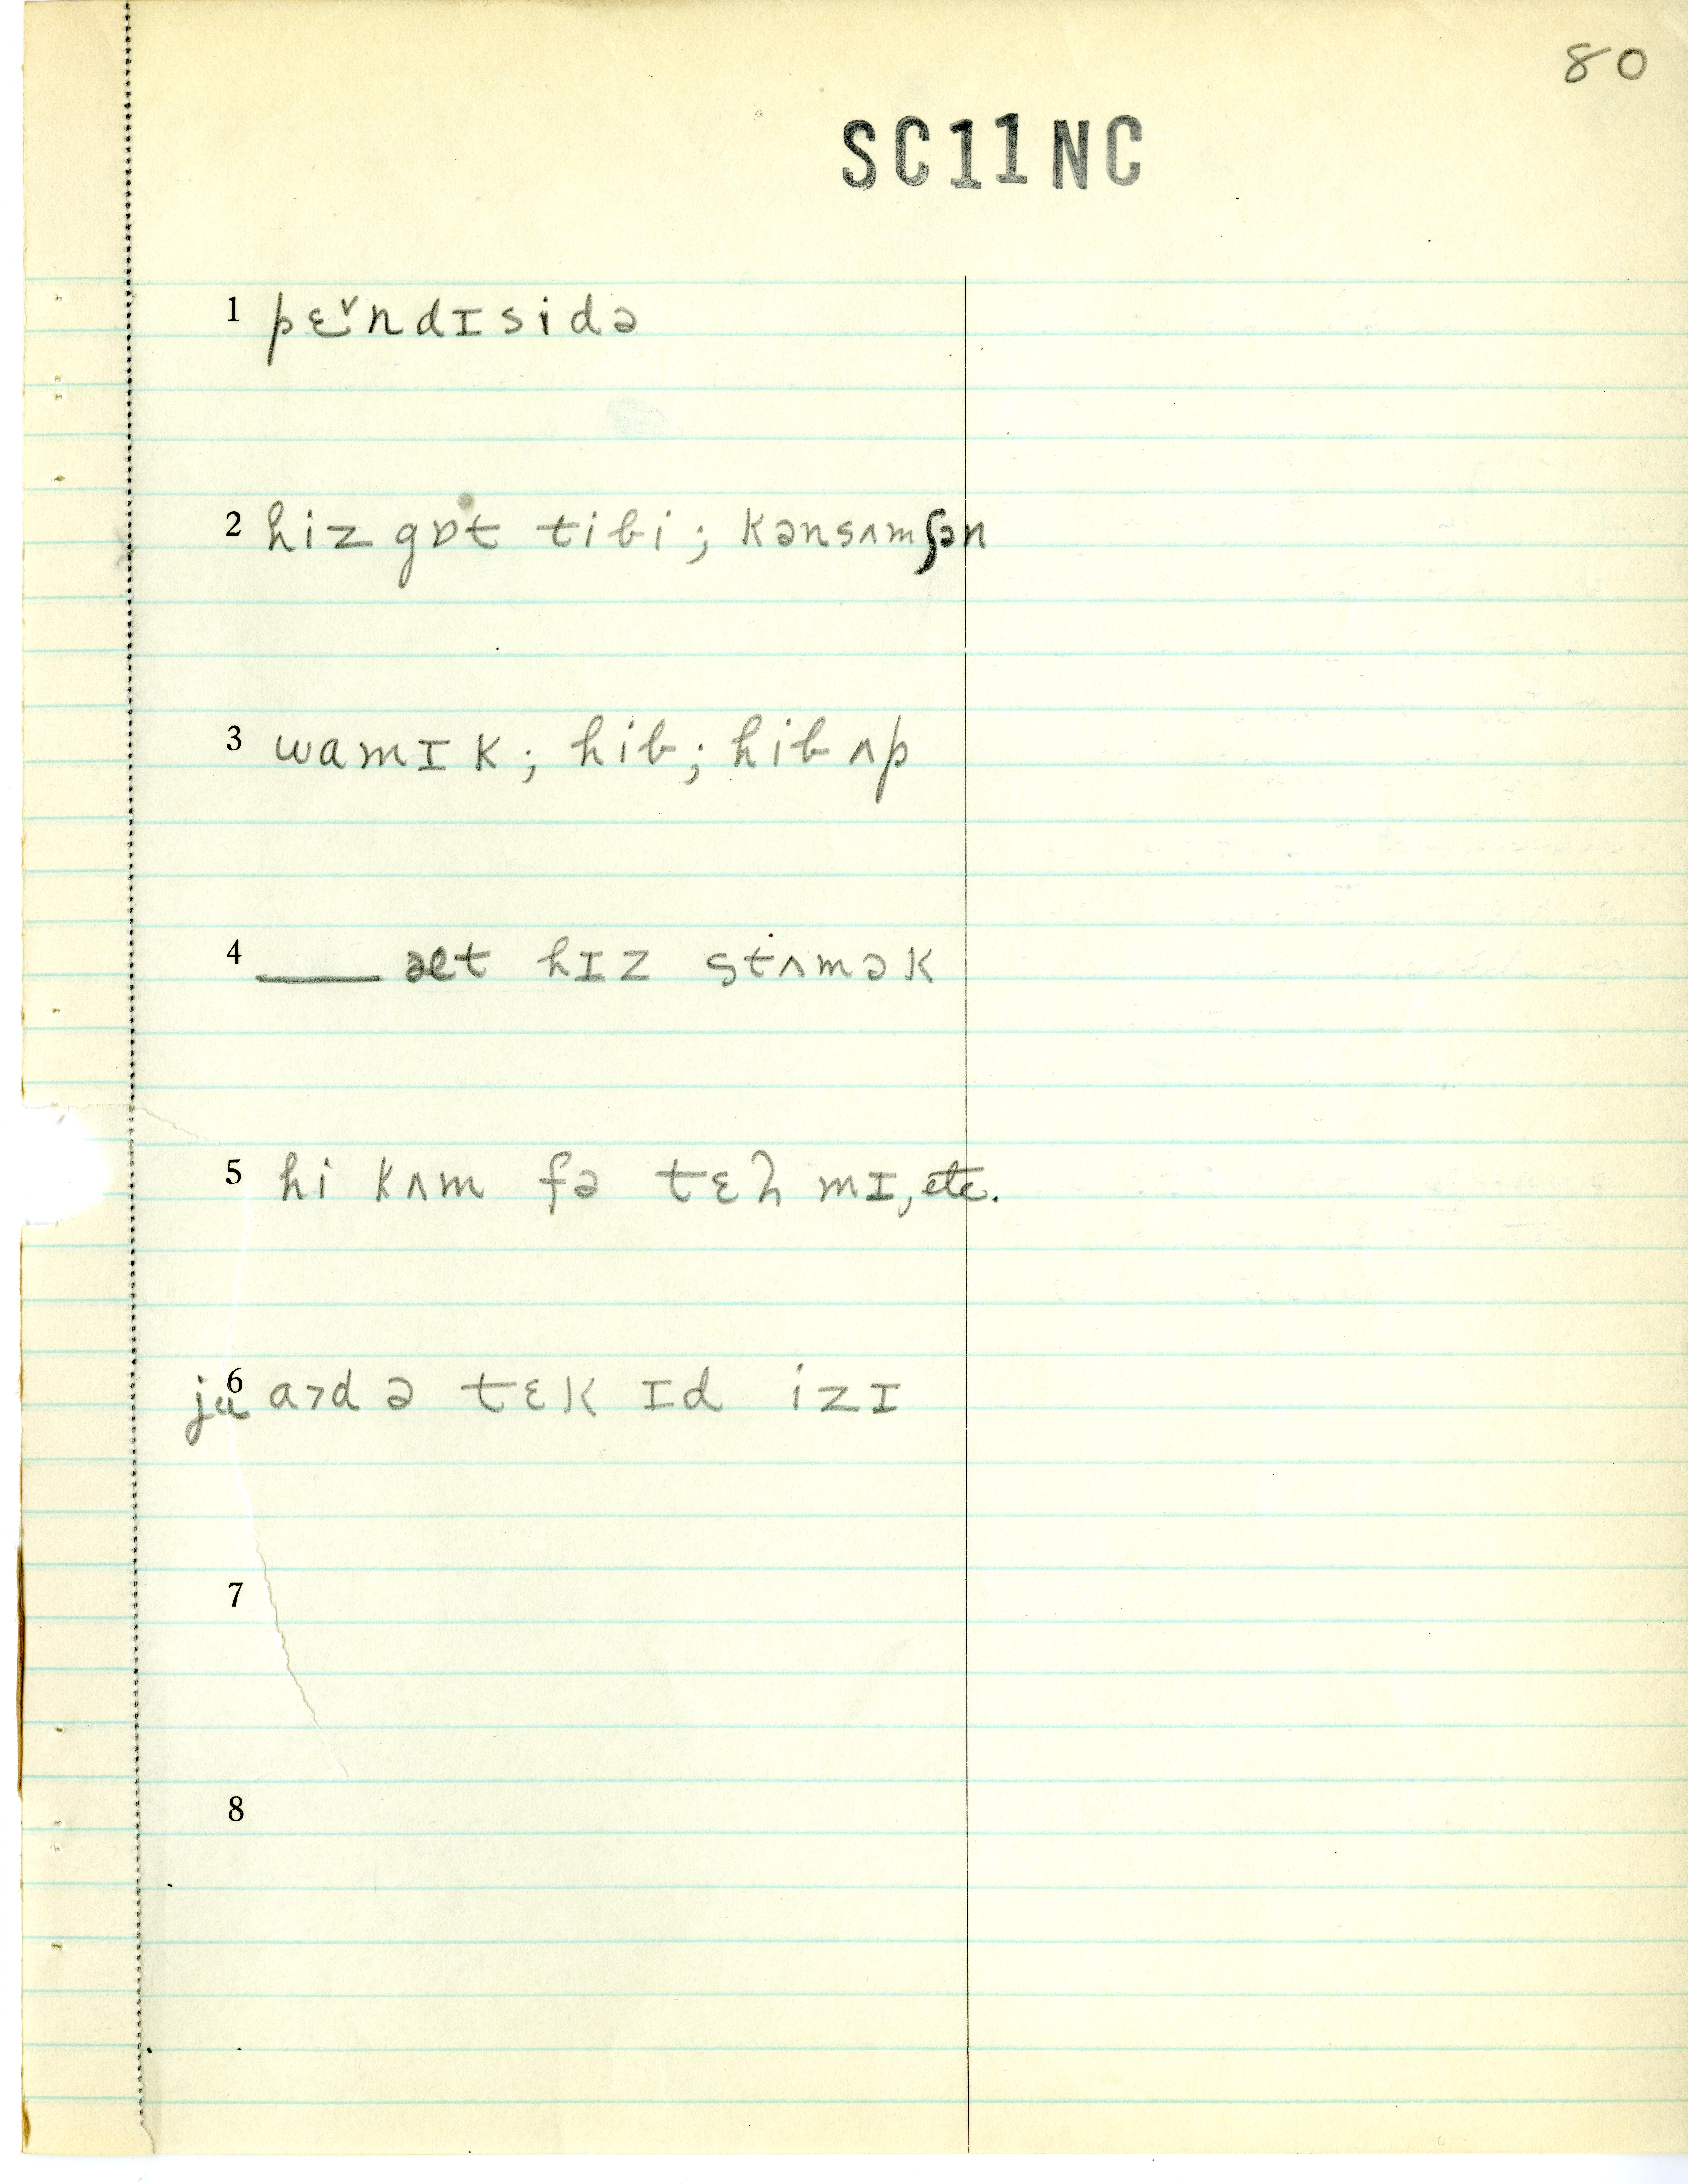 80
SC11NC
1 pɛ˅ndɪsidə
2 hiz gɒt tibi; kənsʌmʃən
3 wamɪk; hib; hib ʌp
4 ____ æt hɪz stʌmək
5 hi kʌm fə tɛl mɪ, etc.
6 ju aɔd ə tɛk ɪd izɪ
7
8